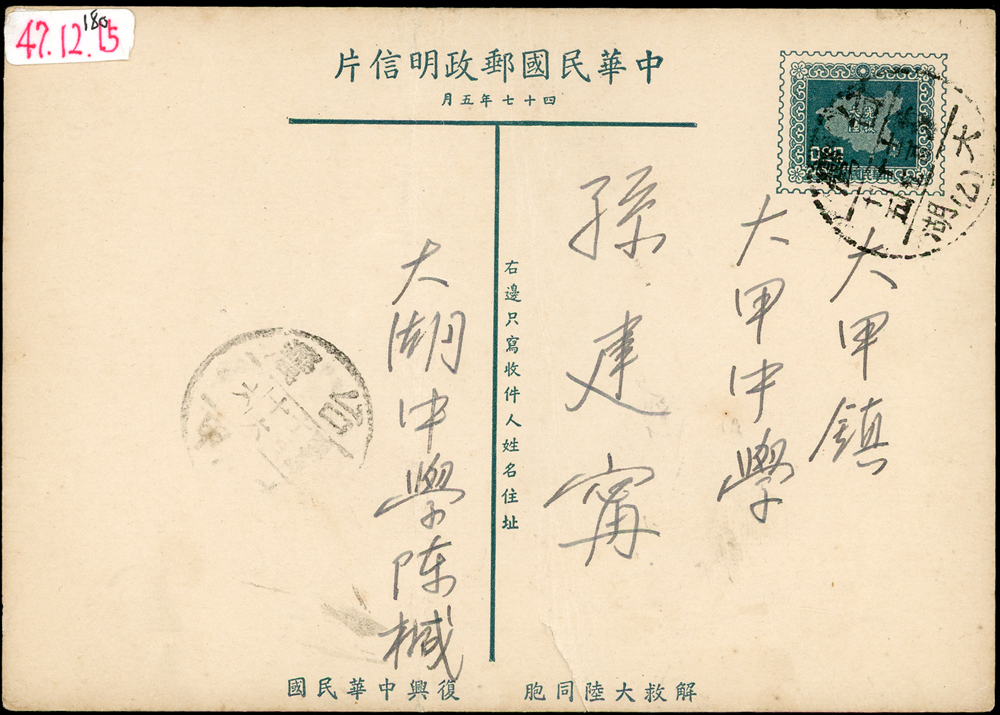 47.12.15
180
中華民國郵政明信片
四十七年五月
大甲鎮
大甲中學
孫建甯
右邊只寫收件人姓名住址
大湖中學陈械
解救大陸同胞
復興中華民國
大湖(乙)